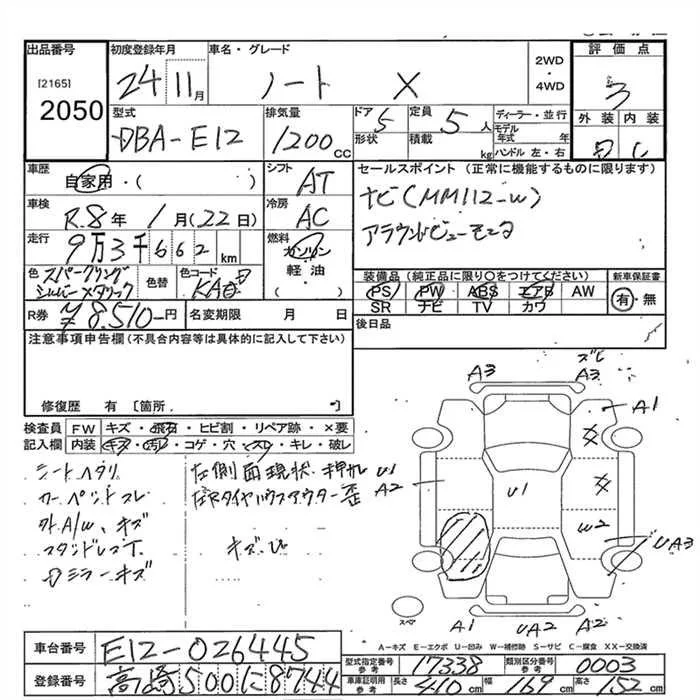 出品番号 初度登録年月 車名・グレード 2WD・4WD 評価点
[2165] 2050 24 11月 ノート X 3
型式 排気量 ドア 5 定員 5人 ディーラー・並行 外装 内装
DBA-E12 1200cc 形状 積載 kg モデル年式 年 ハンドル 左・右 C
車歴 自家用・( ) シフト AT セールスポイント (正常に機能するものに限ります)
車検 R.8年 1月(22日) 冷房 AC ナビ(MM112-W)
走行 9万3千662km 燃料 ガソリン 軽油・( ) アラウンドビューモニタ
色 スパークリングシルバーメタリック 色替 色コード 装備品(純正品に限り○をつけてください) 新車保証書
PS PW ABS エアB AW 有・無
SR ナビ TV カワ
R券 ¥8,510-円 名変期限 月 日 後日品
注意事項申告欄(不具合内容等は具体的に記入して下さい)
修復歴 有 [箇所 ]
検査員記入欄 FW キズ・飛石・ヒビ割・リペア跡・×要
内装 キズ・汚れ・コゲ・穴・スレ・キレ・破レ
シートヘタリ 左側面現状 押サレ
カーペットスレ 左Rタイヤハウスアウター歪
外A/W、キズ
キズ・ビ
ミラーキズ
A3 A3 A1
U1 A2 U1 W2 UA3
スペア A1 UA2 A1
A-キズ E-エクボ U-凹み W-補修跡 S-サビ C-腐食 XX-交換済
車台番号 E12-026445 型式指定番号 参考 17338 類別区分番号 参考 0003
登録番号 高崎500に8744 車庫証明用 参考 長さ 410cm 幅 169cm 高さ 152cm